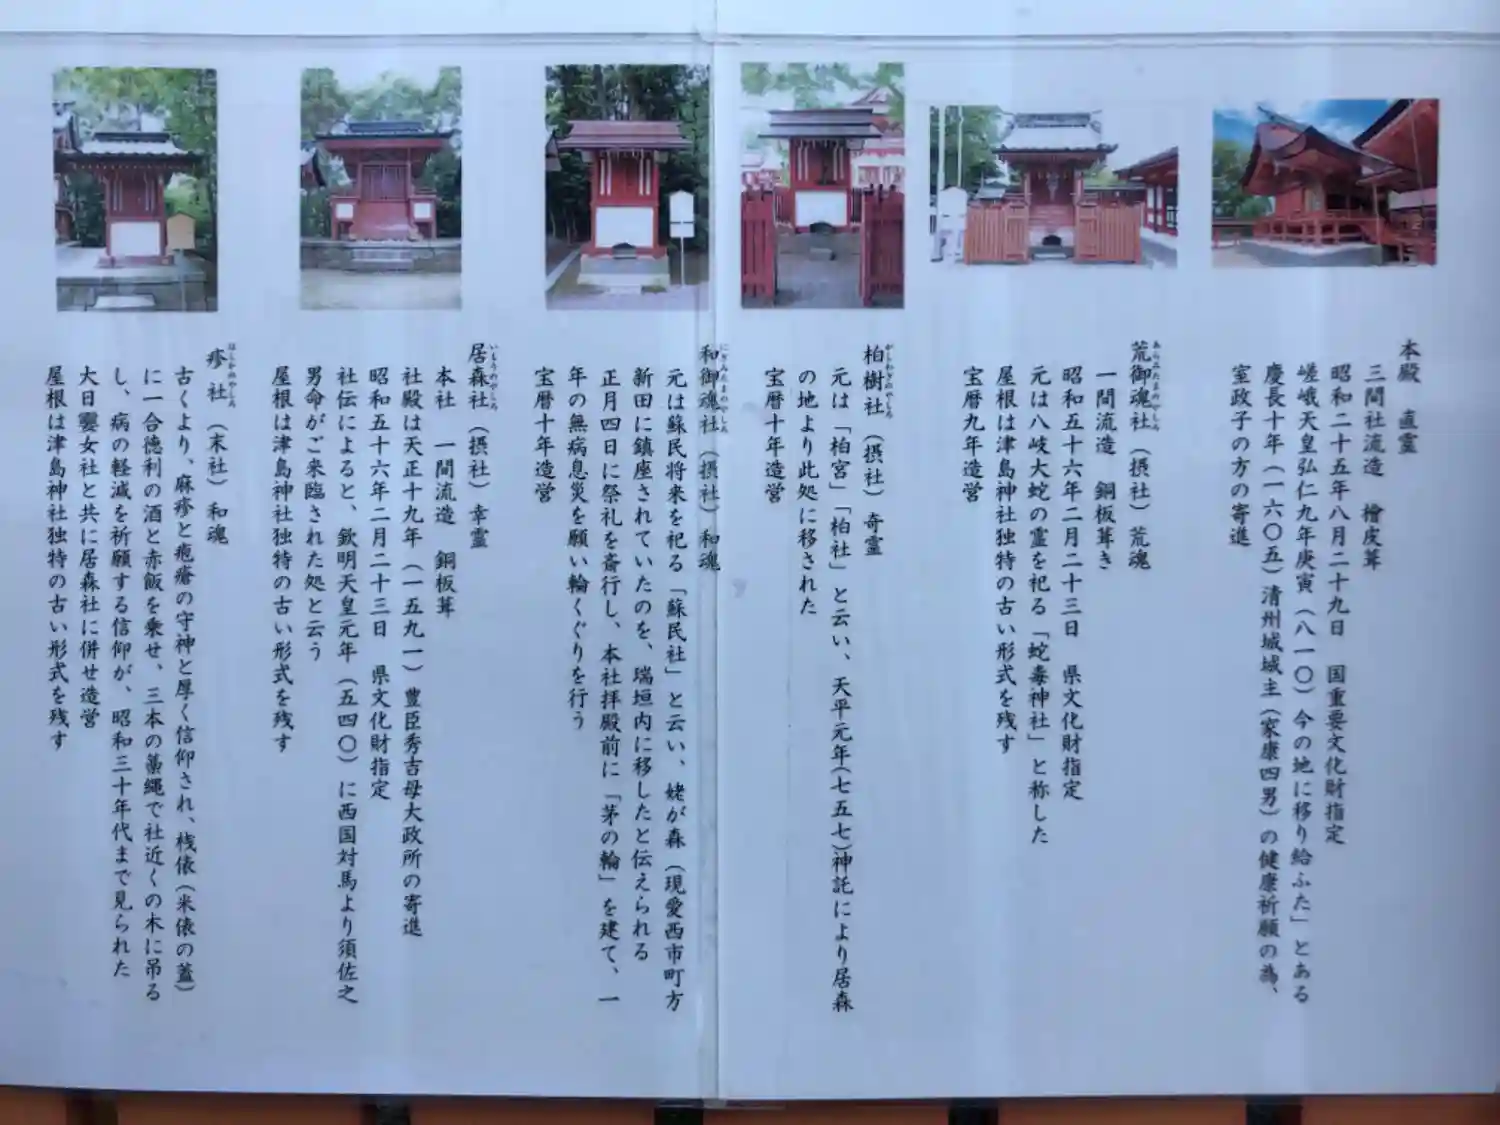 本殿 直霊
三間社流造 檜皮葺
昭和二十五年八月二十九日 国重要文化財指定
嵯峨天皇弘仁九年庚寅（八一〇）今の地に移り給ふた」とある
慶長十年（一六〇五）清州城城主（家康四男）の健康祈願の為、
室政子の方の寄進
荒御魂社（摂社）荒魂
あらみたまのやしろ
一間流造 銅板葺き
昭和五十六年二月二十三日 県文化財指定
元は八岐大蛇の霊を祀る「蛇毒神社」と称した
屋根は津島神社独特の古い形式を残す
宝暦九年造営
柏樹社（摂社）奇霊
かしわぎのやしろ
元は「柏宮」「柏社」と云い、天平元年（七五七）神託により居森
の地より此処に移された
宝暦十年造営
和御魂社（摂社）和魂
にぎみたまのやしろ
元は蘇民将来を祀る「蘇民社」と云い、姥が森（現愛西市町方
新田に鎮座されていたのを、瑞垣内に移したと伝えられる
正月四日に祭礼を斎行し、本社拝殿前に「茅の輪」を建て、一
年の無病息災を願い輪くぐりを行う
宝暦十年造営
居森社（摂社）幸霊
いもりのやしろ
本社 一間流造 銅板葺
社殿は天正十九年（一五九一）豊臣秀吉母大政所の寄進
昭和五十六年二月二十三日 県文化財指定
社伝によると、欽明天皇元年（五四〇）に西国対馬より須佐之
男命がご来臨された処と云う
屋根は津島神社独特の古い形式を残す
疹社（末社）和魂
はしかのやしろ
古くより、麻疹と疱瘡の守神と厚く信仰され、桟俵（米俵の蓋）
に一合徳利の酒と赤飯を乗せ、三本の藁縄で社近くの木に吊る
し、病の軽減を祈願する信仰が、昭和三十年代まで見られた
大日孁女社と共に居森社に併せ造営
屋根は津島神社独特の古い形式を残す